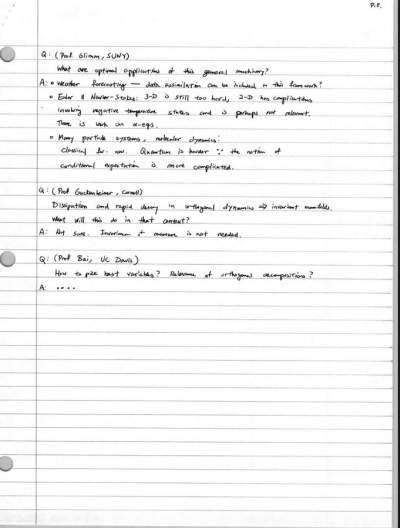 P.P.
Q: (Prof. Glimm, SUNY)
What are optimal applications of this general machinery?
A: • Weather forecasting — data assimilation can be included in this framework?
• Euler & Navier-Stokes: 3-D is still too hard, 2-D has complications
involving negative temperature states and is perhaps not relevant.
There is work on α-eqs.
• Many particle systems, molecular dynamics:
Classical for now. Quantum is harder ∵ the notion of
conditional expectation is more complicated.
Q: (Prof. Guckenheimer, Cornell)
Dissipation and rapid decay in orthogonal dynamics ⇒ invariant manifolds.
What will this do in that context?
A: Not sure. Invariance of measure is not needed.
Q: (Prof Bai, UC Davis)
How to pick best variables? Relevance of orthogonal decompositions?
A: ....